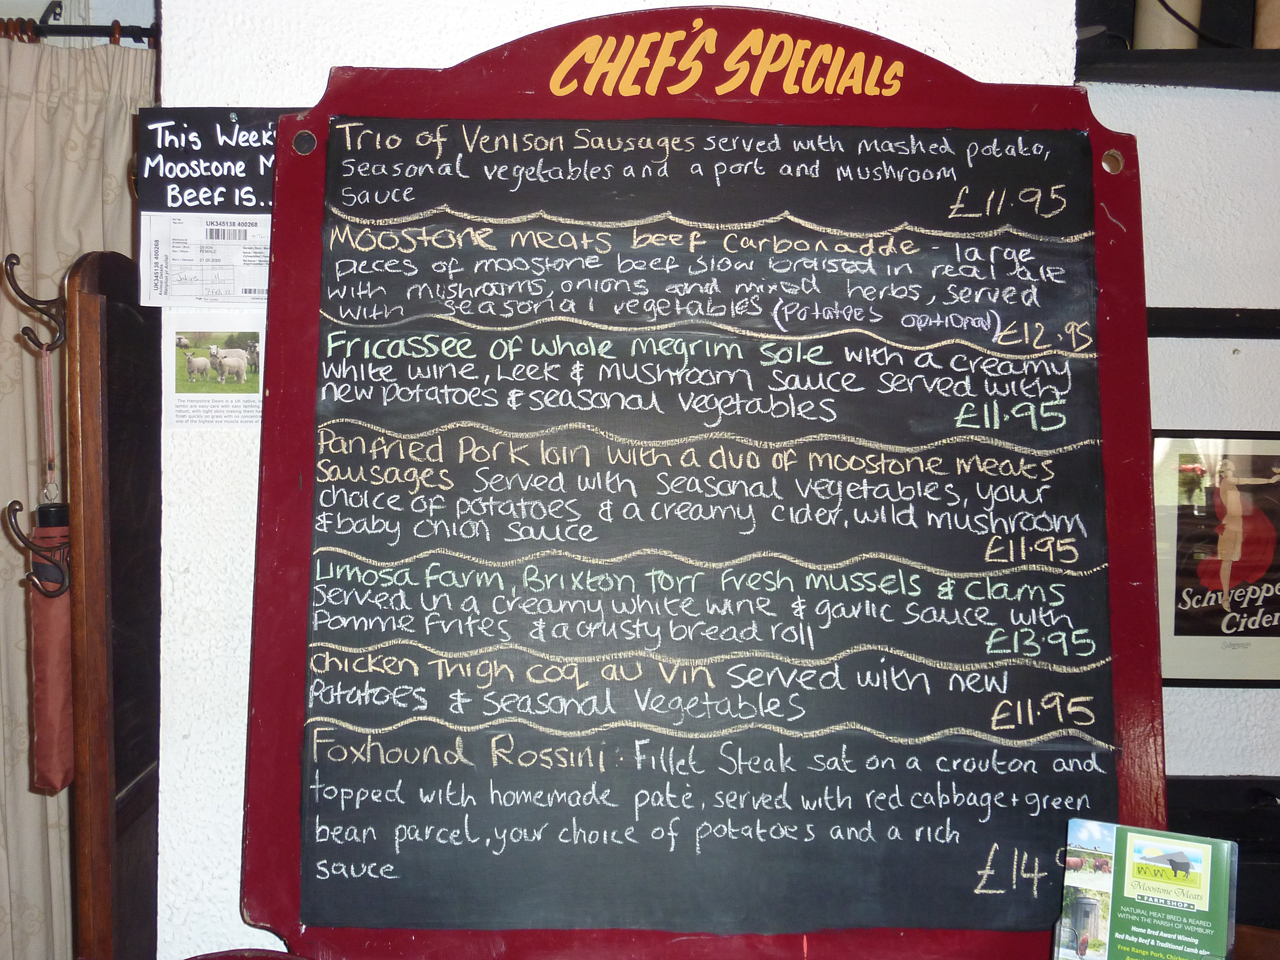 CHEF'S SPECIALS
Trio of Venison Sausages served with mashed potato,
seasonal vegetables and a port and mushroom
sauce
£11.95
Moostone meats beef carbonadde - large
pieces of moostone beef slow braised in real ale
with mushrooms, onions and mixed herbs, served
with seasonal vegetables (potatoes optional)
£12.95
Fricassee of whole megrim sole with a creamy
white wine, Leek & Mushroom sauce served with
new potatoes & seasonal vegetables
£11.95
Panfried Pork loin with a duo of moostone meats
sausages served with seasonal vegetables, your
choice of potatoes & a creamy cider, wild mushroom
& baby onion sauce
£11.95
Limosa farm, Brixton Torr fresh mussels & clams
served in a creamy white wine & garlic sauce with
Pomme Frites & a crusty bread roll
£13.95
Chicken Thigh coq au vin served with new
Potatoes & seasonal Vegetables
£11.95
Foxhound Rossini: Fillet Steak sat on a crouton and
topped with homemade patè, served with red cabbage + green
bean parcel, your choice of potatoes and a rich
sauce
£14.
This Week's
Moostone M
Beef is..
UK345138 400268
UK345138 400268
Schweppe
Cider
Moostone Meats
FARM SHOP
NATURAL MEAT BRED & REARED
WITHIN THE PARISH OF WEMBURY
Home Bred Award Winning
Red Ruby Beef & Traditional Lamb
Free Range Pork,